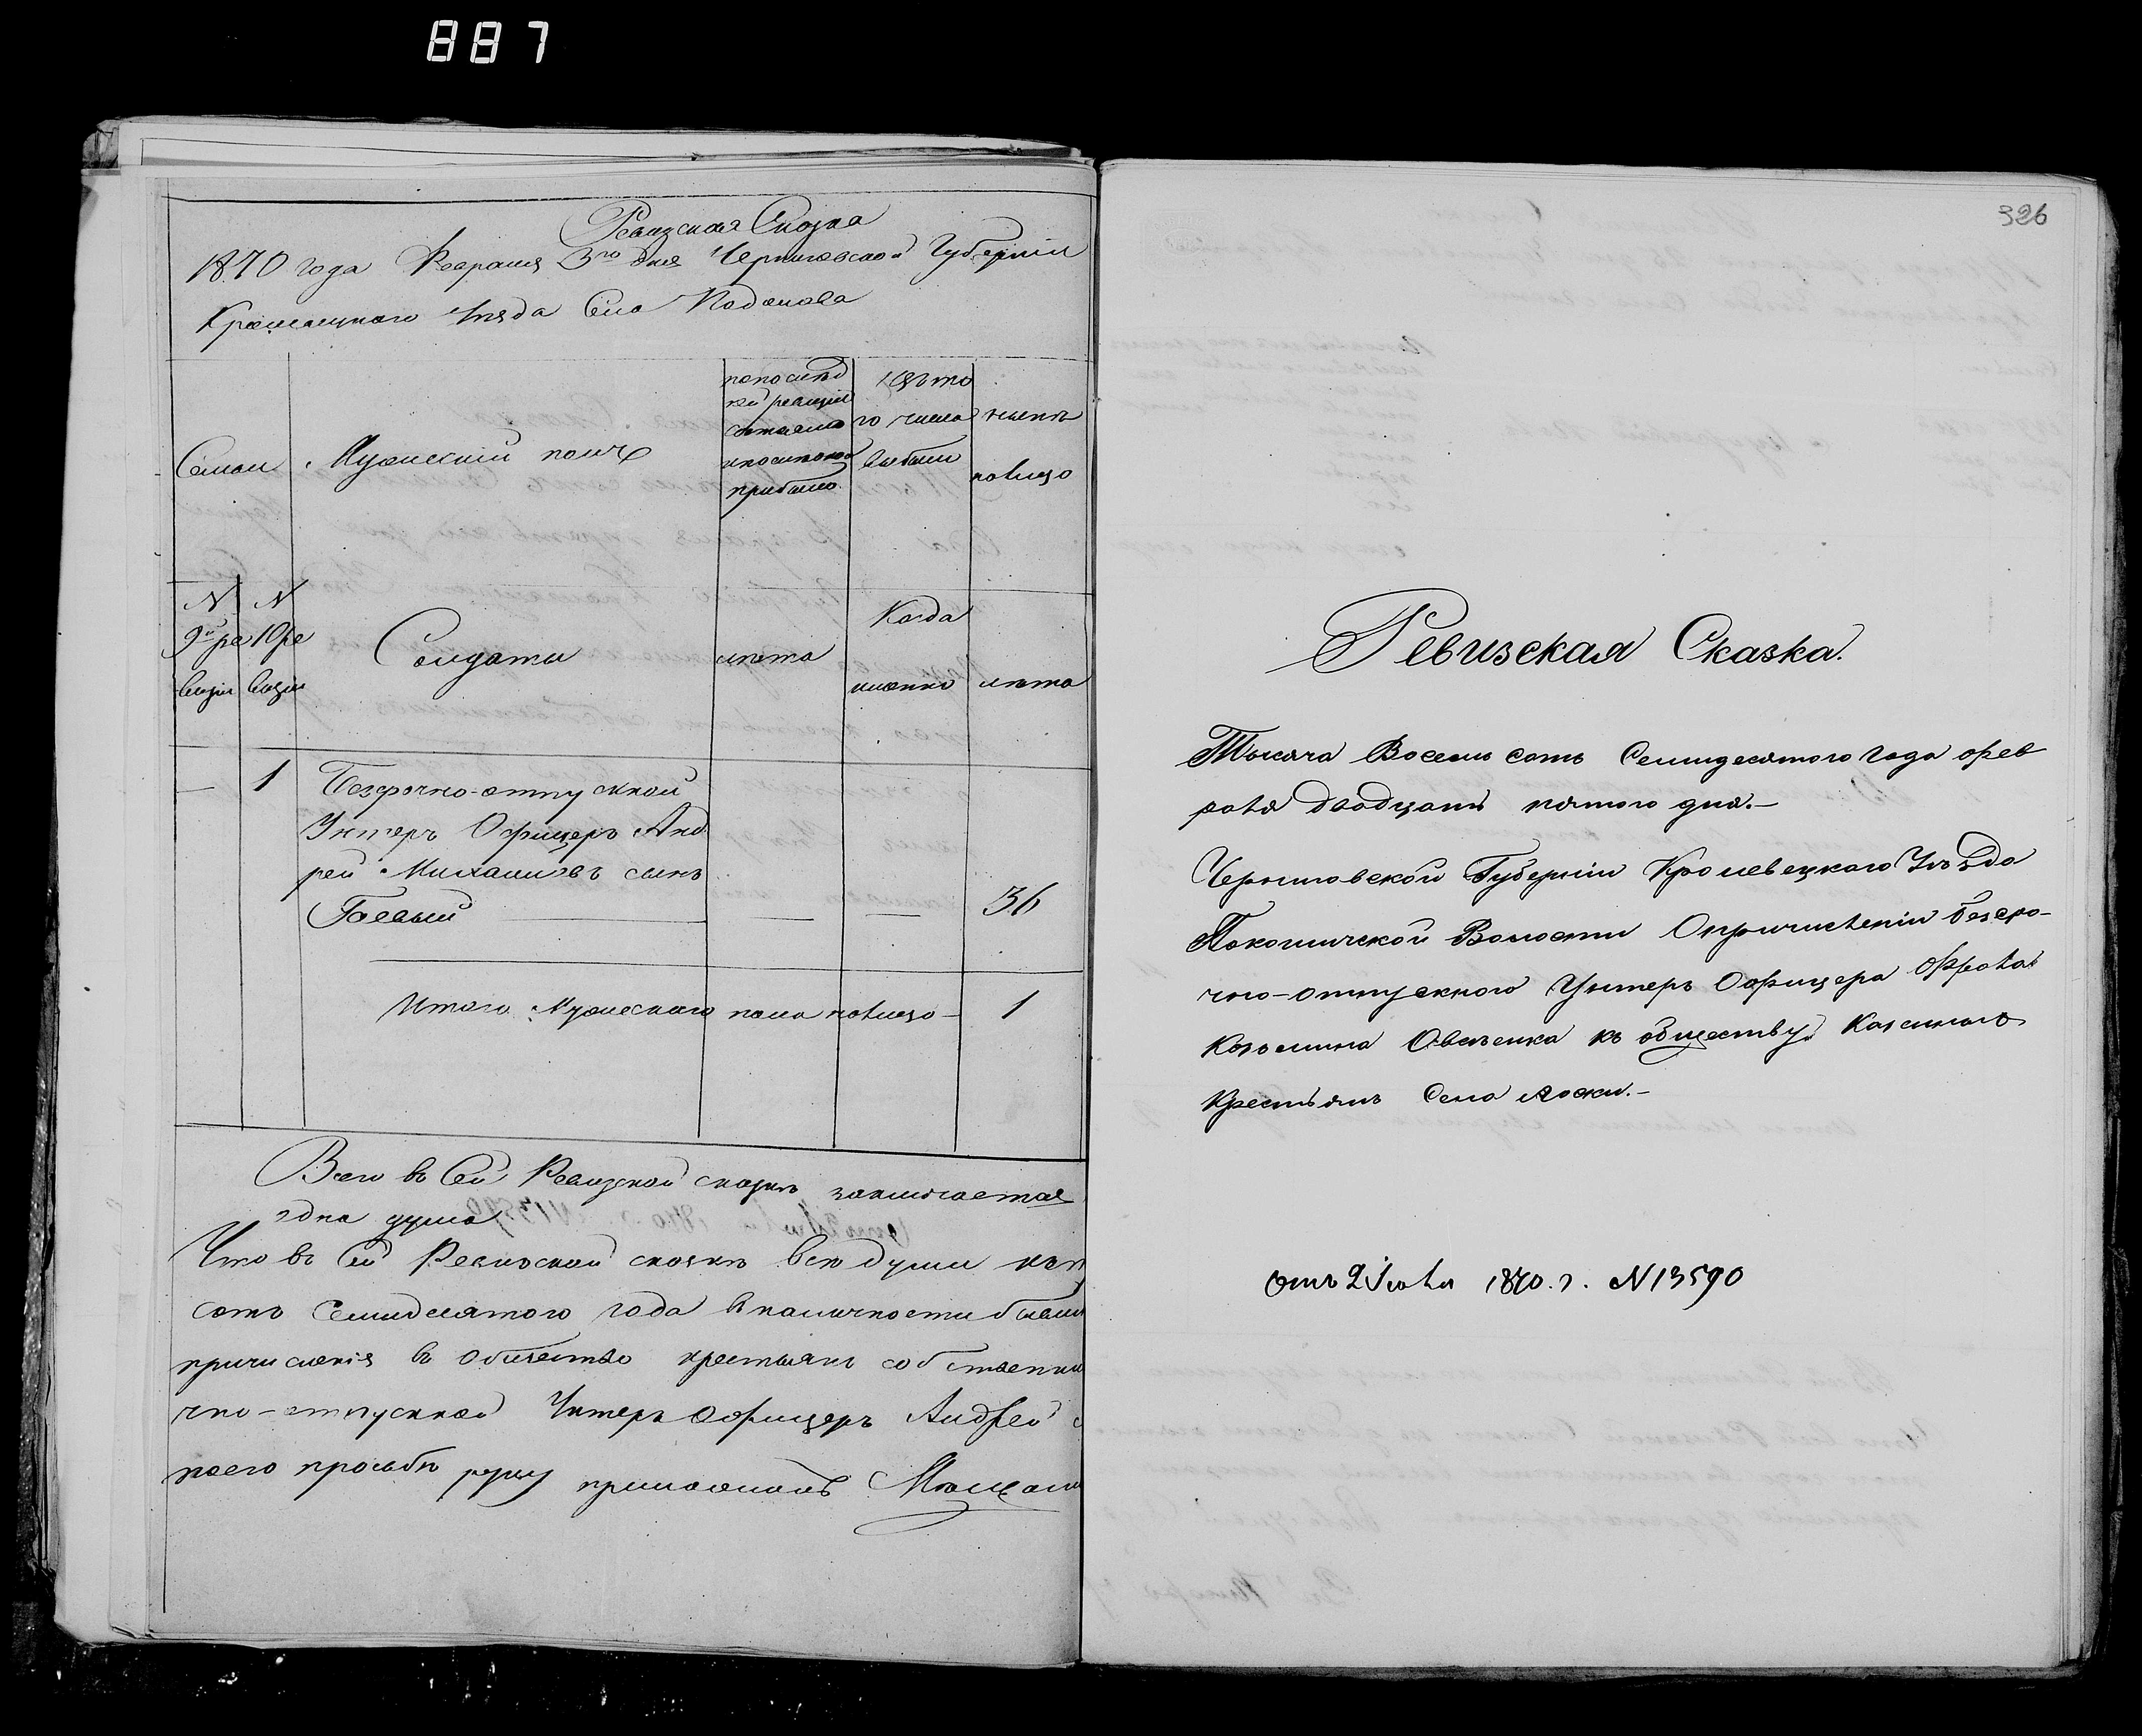 887
Ревизская Сказка
1870 года Февраля 3го дня Черниговской Губерніи
Кролевецкаго Уезда Села Подолова
Семьи
Мужескій полъ
по послѣд
ней ревизіи
состояло
и послѣ оной
прибыло
Изъ то
го числа
выбыли
нынѣ
налицо
N
9й ре
визіи
N
10 ре
визіи
Солдаты
лѣта
Когда
именно
лѣта
— 1 Безсрочно-отпускной
Унтеръ Офицеръ Анд
рей Михайловъ сынъ
— — 36
Итого Мужескаго пола налицо — 1
Всего въ Сей Ревизской сказкѣ заключается
одна душа
Что въ Сей Ревизской сказкѣ всѣ души къ
сотъ Семидесятого года въ наличности бывші
причисленія въ общество крестьянъ собственни
чно-отпускной Унтеръ Офицеръ Андрей
коего просьбѣ руку приложилъ
326
Ревизская Сказка.
Тысяча Восемь сотъ Семидесятого года фев
раля двадцать пятого дня.—
Черниговской Губерніи Кролевецкаго Уѣзда
Понорницкой Волости О причисленіи безсро-
чно-отпускного Унтеръ Офицера Фрола
Козьмина къ обществу Казенныхъ
Крестьянъ Села Лоски.—
отъ 2 Іюля 1870. г. N 13590